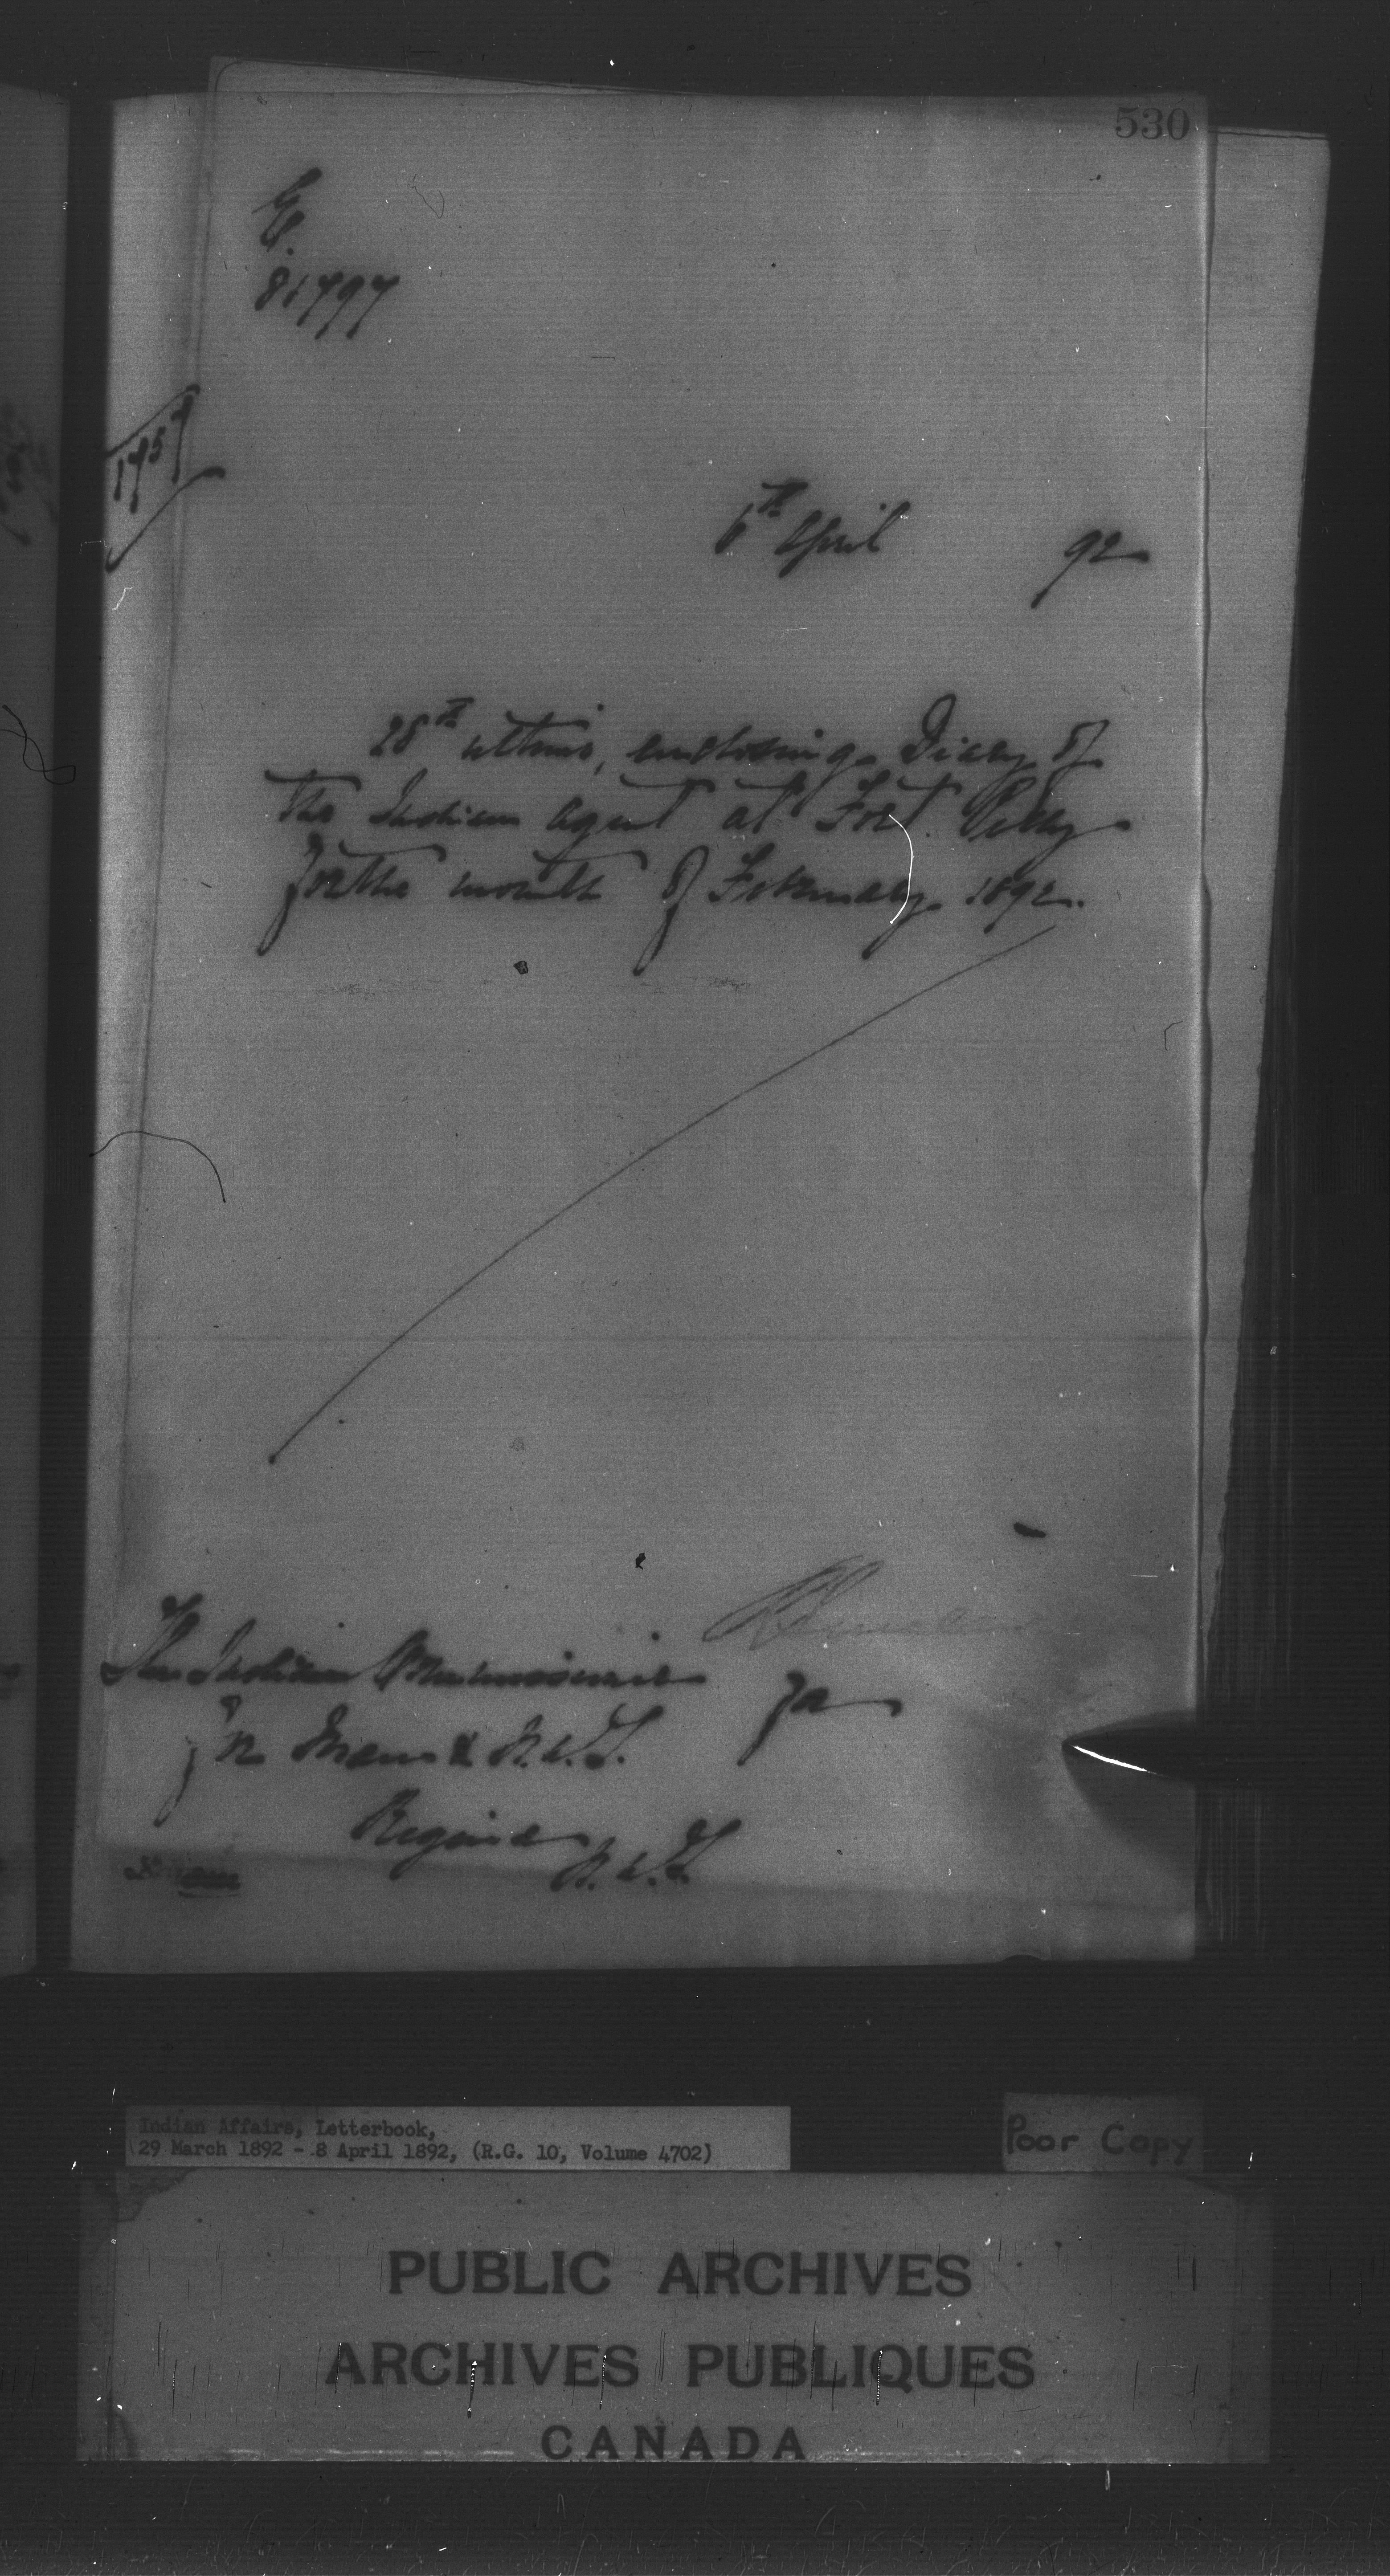 530
81797
1757
6th April 92
28th ultimo, enclosing Diary of
the Indian Agent at Fort Pelly
for the month of February 1892.
The Indian Commissioner
for Man & N.W.T.
Regina
N.W.T.
Indian Affairs, Letterbook,
29 March 1892 - 8 April 1892, (R.G. 10, Volume 4702)
Poor Copy
PUBLIC ARCHIVES
ARCHIVES PUBLIQUES
CANADA